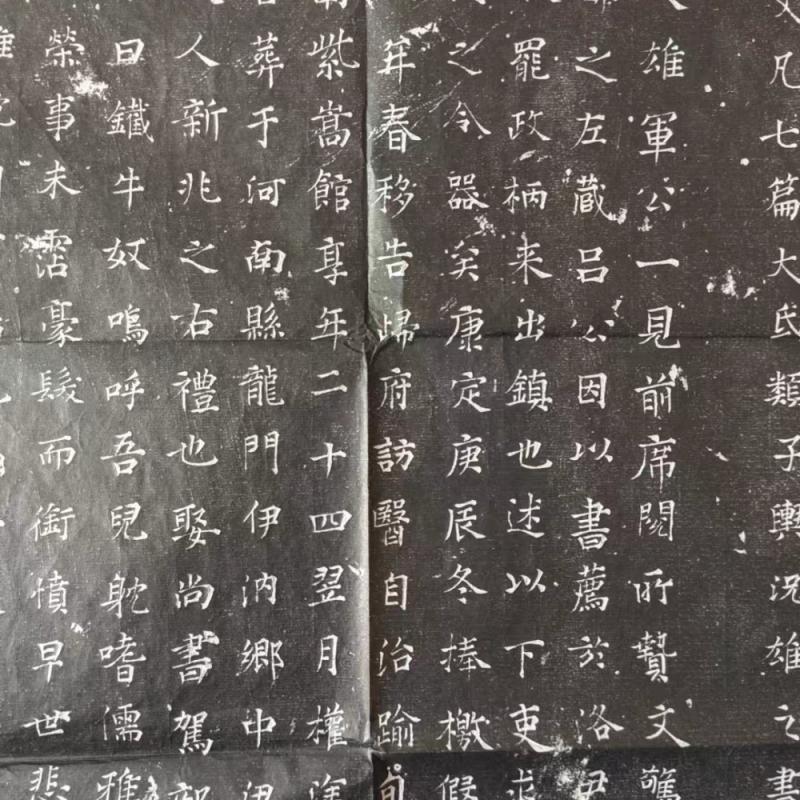 文凡七篇大氐類子輿況雄之書
雄軍公一見前席閱所贄文驚
之左藏呂公因以書薦於洛尹
罷政柄来出鎮也述以下吏求
之令器矣康定庚辰冬捧檄假
年春移告歸府訪醫自治踰旬
紫嵩館享年二十四翌月權窆
葬于河南縣龍門伊汭鄉中伊
人新兆之右禮也娶尚書駕部
曰鐵牛奴嗚呼吾兒躭嗜儒雅
榮事未霑豪髮而銜憤早世悲